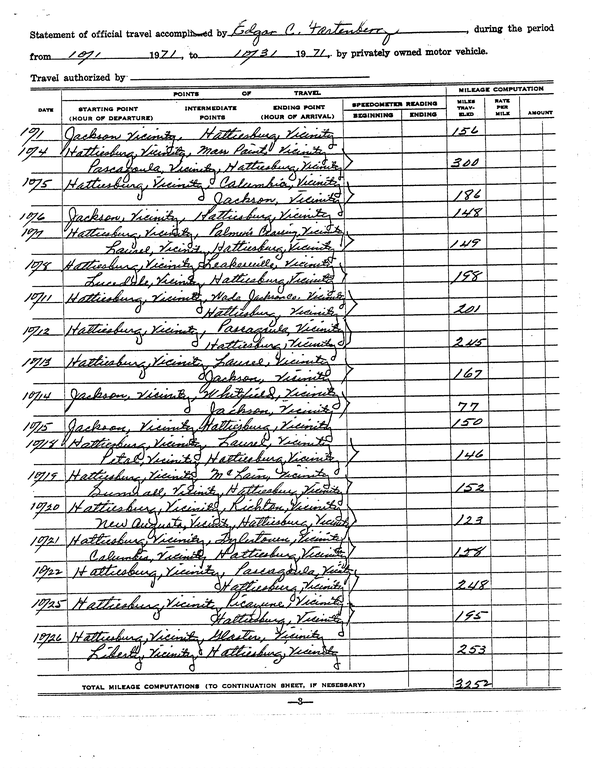 Statement of official travel accomplished by Edgar C. Fortenberry, during the period
from 10/1 1971, to 10/31 1971, by privately owned motor vehicle.
Travel authorized by
POINTS OF TRAVEL MILEAGE COMPUTATION
DATE STARTING POINT (HOUR OF DEPARTURE) INTERMEDIATE POINTS ENDING POINT (HOUR OF ARRIVAL) SPEEDOMETER READING BEGINNING ENDING MILES TRAV- ELED RATE PER MILE AMOUNT
10/1 Jackson Vicinity, Hattiesburg, Vicinity 156
10/4 Hattiesburg, Vicinity, Moss Point, Vicinity
Pascagoula, Vicinity, Hattiesburg, Vicinity 300
10/5 Hattiesburg, Vicinity, Columbia, Vicinity
Jackson, Vicinity 186
10/6 Jackson, Vicinity, Hattiesburg, Vicinity 148
10/7 Hattiesburg, Vicinity, Palmer's Crossing, Vicinity
Laurel, Vicinity, Hattiesburg, Vicinity 149
10/8 Hattiesburg, Vicinity, Leakesville, Vicinity
Lucedale, Vicinity, Hattiesburg, Vicinity 198
10/11 Hattiesburg, Vicinity, Wade Jackson Co. Vicinity
Hattiesburg, Vicinity 201
10/12 Hattiesburg, Vicinity, Pascagoula, Vicinity
Hattiesburg, Vicinity 245
10/13 Hattiesburg, Vicinity, Laurel, Vicinity
Jackson, Vicinity 167
10/14 Jackson, Vicinity, Whitfield, Vicinity
Jackson, Vicinity 77
10/15 Jackson, Vicinity, Hattiesburg, Vicinity 150
10/18 Hattiesburg, Vicinity, Laurel, Vicinity
Petal, Vicinity, Hattiesburg, Vicinity 146
10/19 Hattiesburg, Vicinity, McLain, Vicinity
Sumrall, Vicinity, Hattiesburg, Vicinity 152
10/20 Hattiesburg, Vicinity, Richton, Vicinity
New Augusta, Vicinity, Hattiesburg, Vicinity 123
10/21 Hattiesburg, Vicinity, Tylertown, Vicinity
Columbia, Vicinity, Hattiesburg, Vicinity 158
10/22 Hattiesburg, Vicinity, Pascagoula, Vicinity
Hattiesburg, Vicinity 248
10/25 Hattiesburg, Vicinity, Picayune, Vicinity
Hattiesburg, Vicinity 195
10/26 Hattiesburg, Vicinity, Gloster, Vicinity
Liberty, Vicinity, Hattiesburg, Vicinity 253
TOTAL MILEAGE COMPUTATIONS (TO CONTINUATION SHEET, IF NESESSARY) 3252
—3—